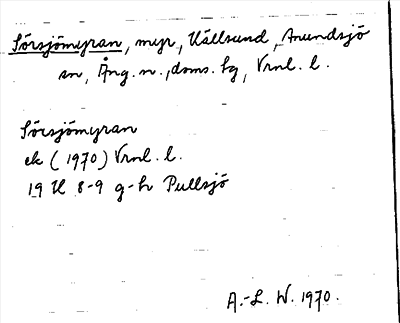 Sörsjömyran, myr, Källsund, Anundsjö
sn, Ång. n., doms. hg, Vrnl. l.
Sörsjömyran
ek (1970) Vrnl. l.
19 H 8-9 g-h Pullsjö
A.-L. W. 1970.